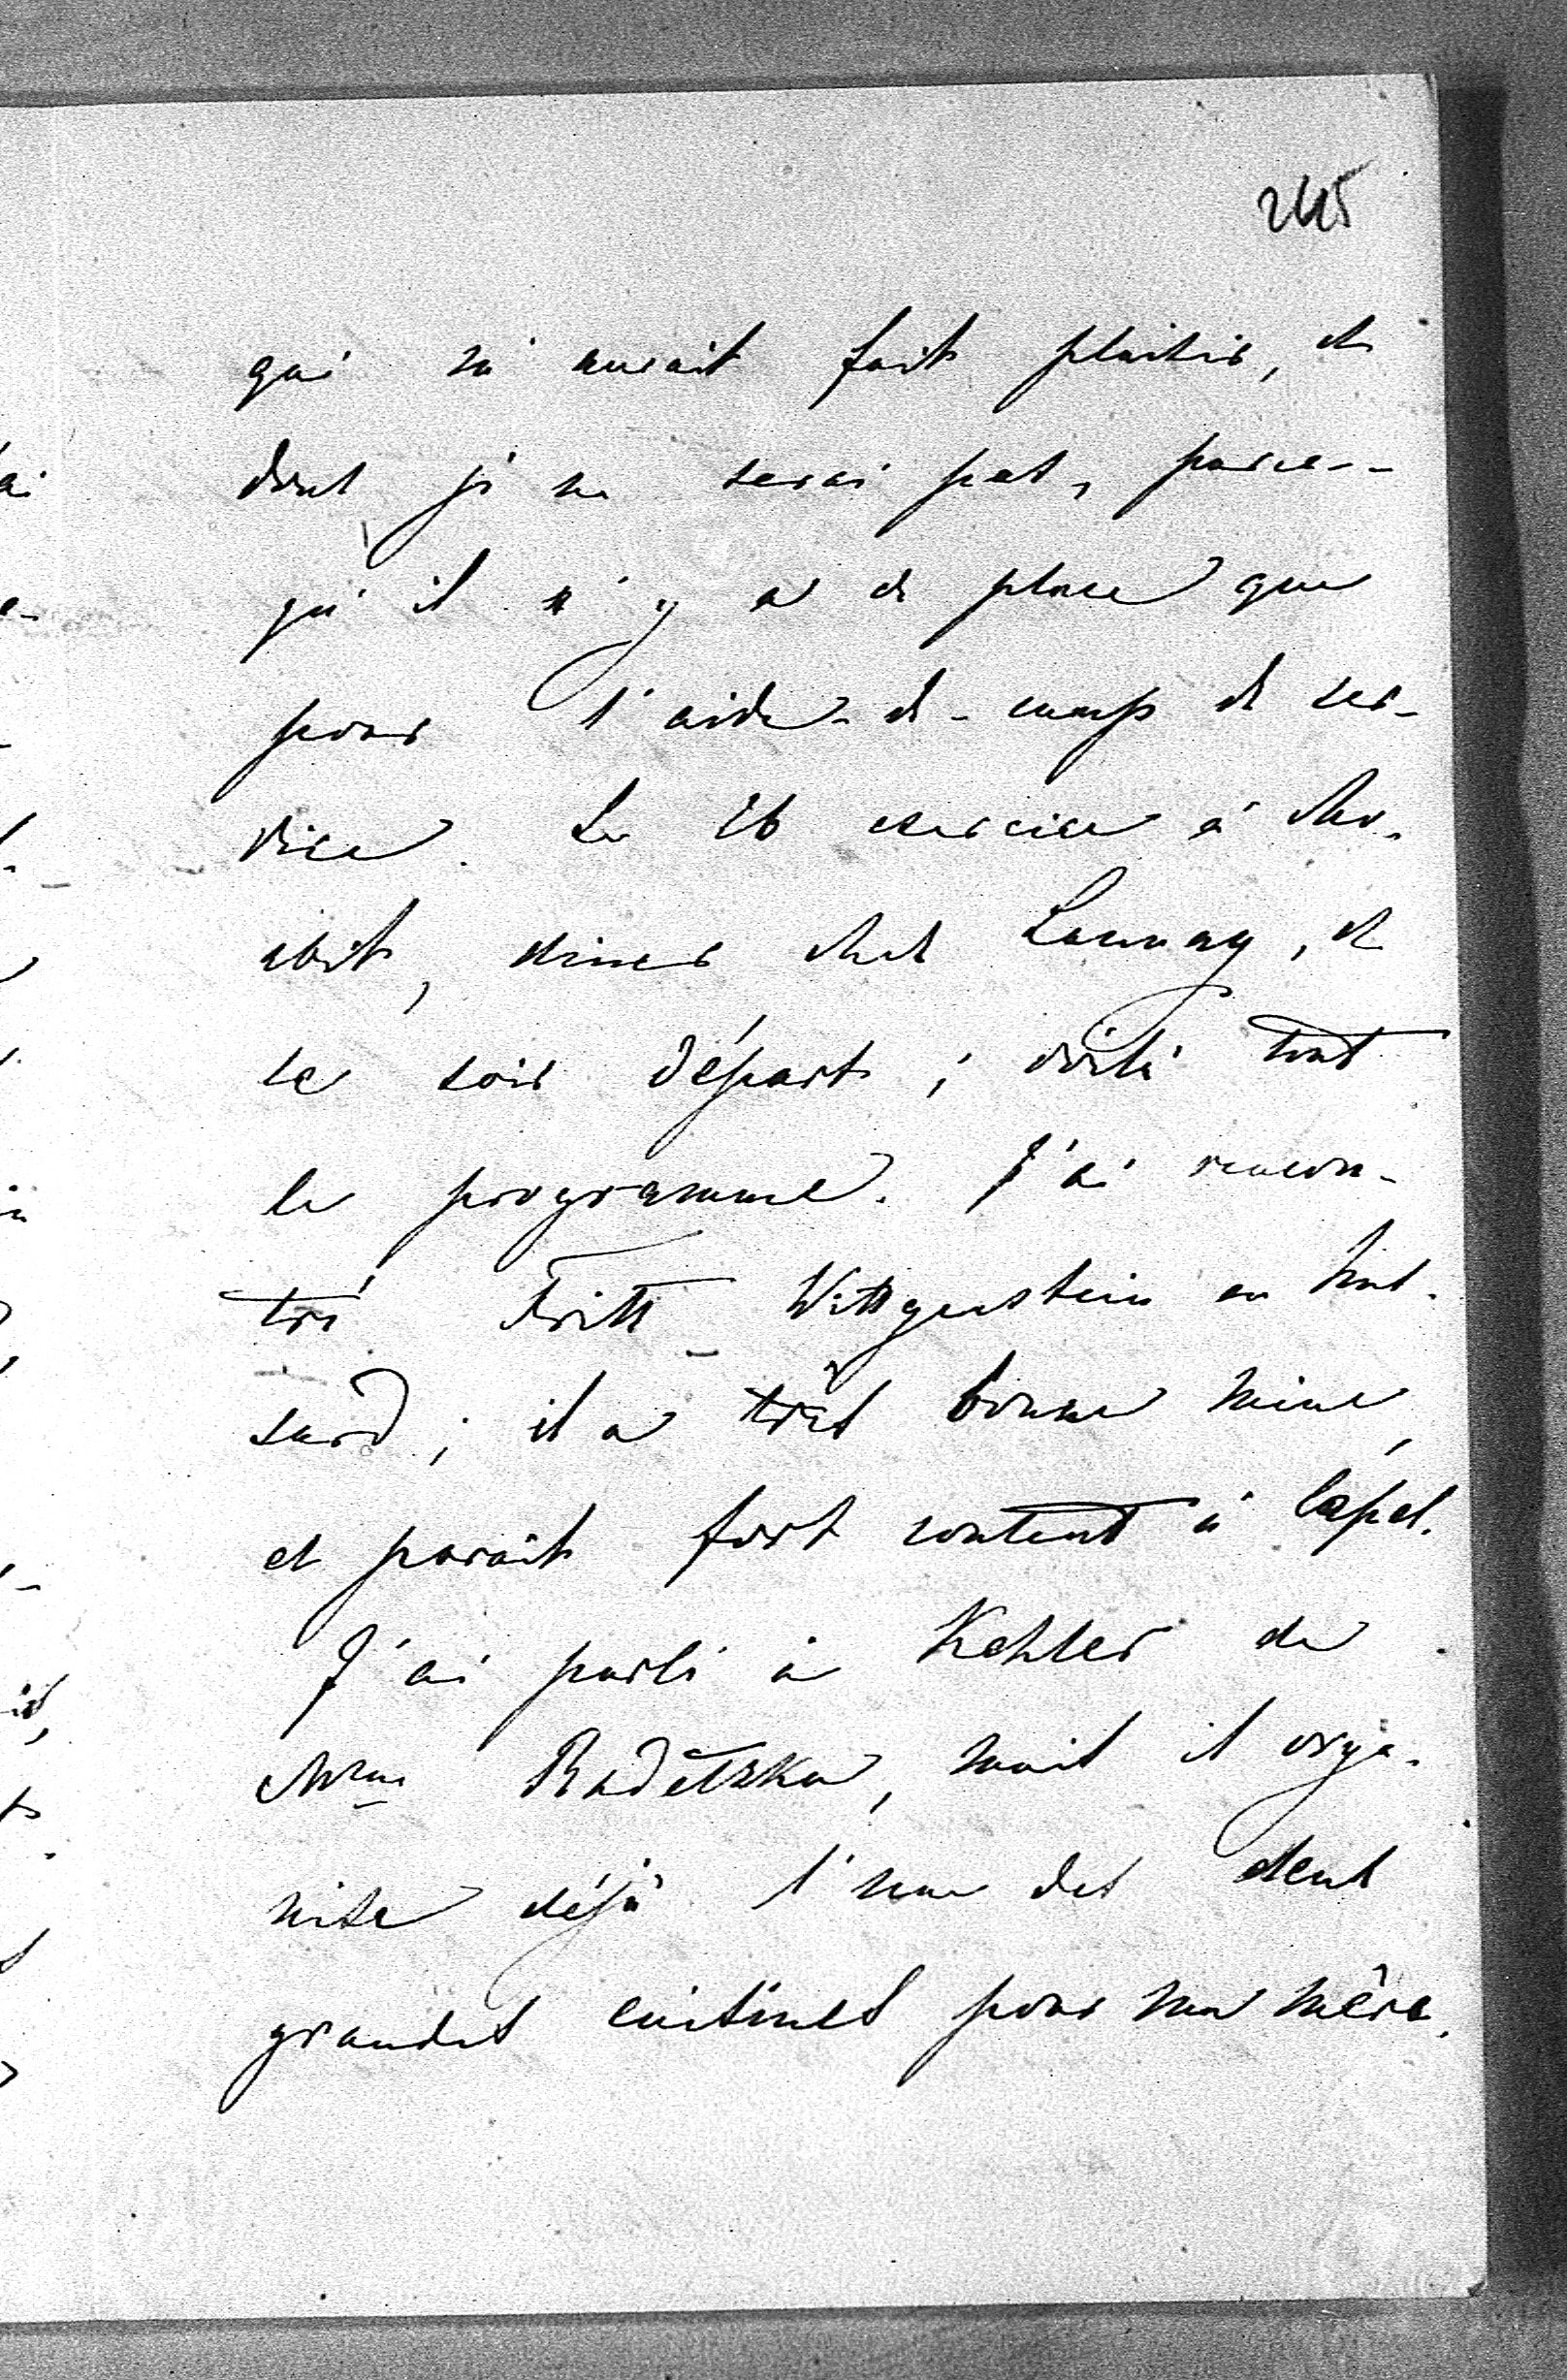 245
qui m'aurait fait plaisir, et
dont je ne serai pas, parce-
qu'il n'y a de place que
pour l'aide-de-camp de ser-
vice. Le 26 exercice à Mo-
abit, diner chez Launay, et
le soir départ ; voilà tout
le programme. J'ai rencon-
tré Fritz Wittgenstein en hus-
sard ; il a très bonne mine,
et parait fort content à
J'ai parlé à Kehler de
Mme Radetzka, mais il orga-
nise déjà l'une des deux
grandes cuisines pour ma mère.